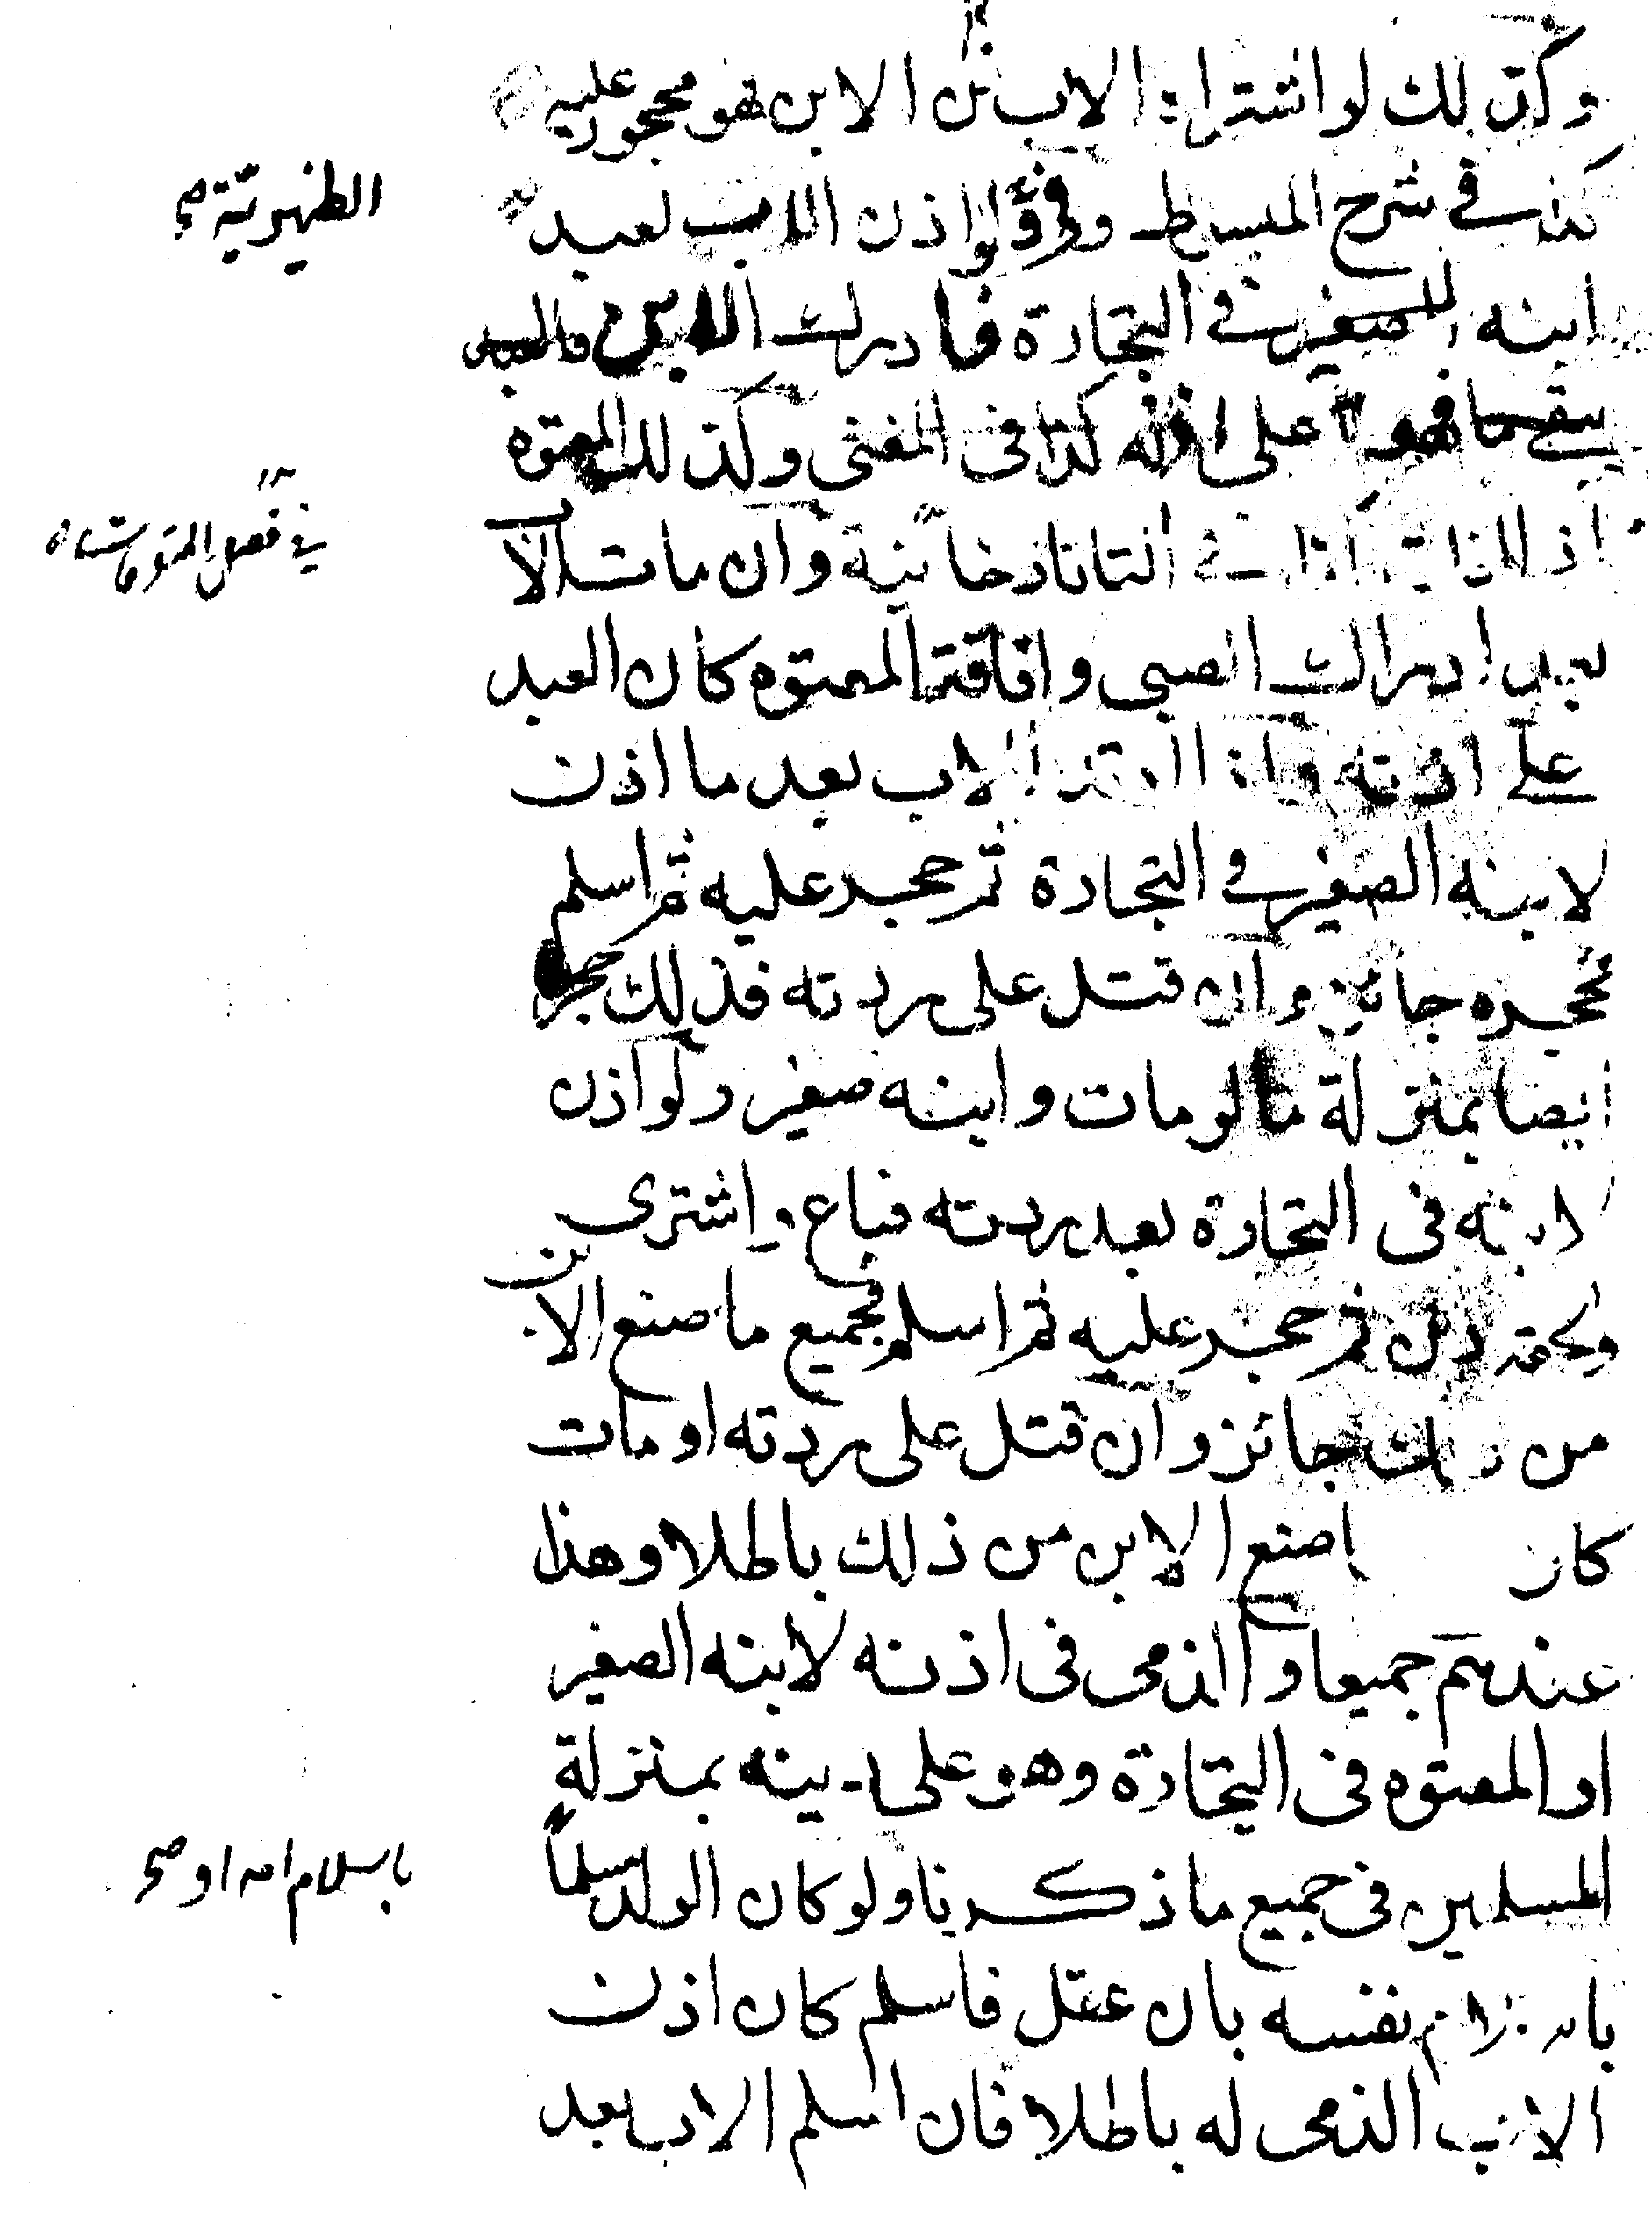 وكذلك لو اشتراه الاب من الابن فهو محجور عليه
كذا في شرح المبسوط وفي الظهيرية صح ولو اذن الاب لعبد
ابنه الصغير في التجارة فادرك الابن والعبد
على اذنه كذا في المغني وكذلك المعتوه
اذا افاق كذا في التاتارخانية وان مات الاب
بعد ادراك الصبي وافاقة المعتوه كان العبد
على اذنه واذا ارتد الاب بعد ما اذن
لابنه الصغير في التجارة ثم حجر عليه ثم اسلم
فحجره جائز وان قتل على ردته فذلك حجر
ايضا بمنزلة ما لو مات وابنه صغير ولو اذن
لابنه في التجارة بعد ردته فباع واشترى
ولحقه دين ثم حجر عليه ثم اسلم فجميع ما صنع الابن
من ذلك جائز وان قتل على ردته او مات
كان ما صنع الابن من ذلك باطلا وهذا
عندهم جميعا والذمي في اذنه لابنه الصغير
او المعتوه في التجارة وهو على دينه بمنزلة
المسلمين في جميع ما ذكرنا ولو كان الولد مسلما
باسلام امه او صح
باسلام نفسه بان عقل فاسلم كان اذن
الاب الذمي له باطلا فان اسلم الاب بعد